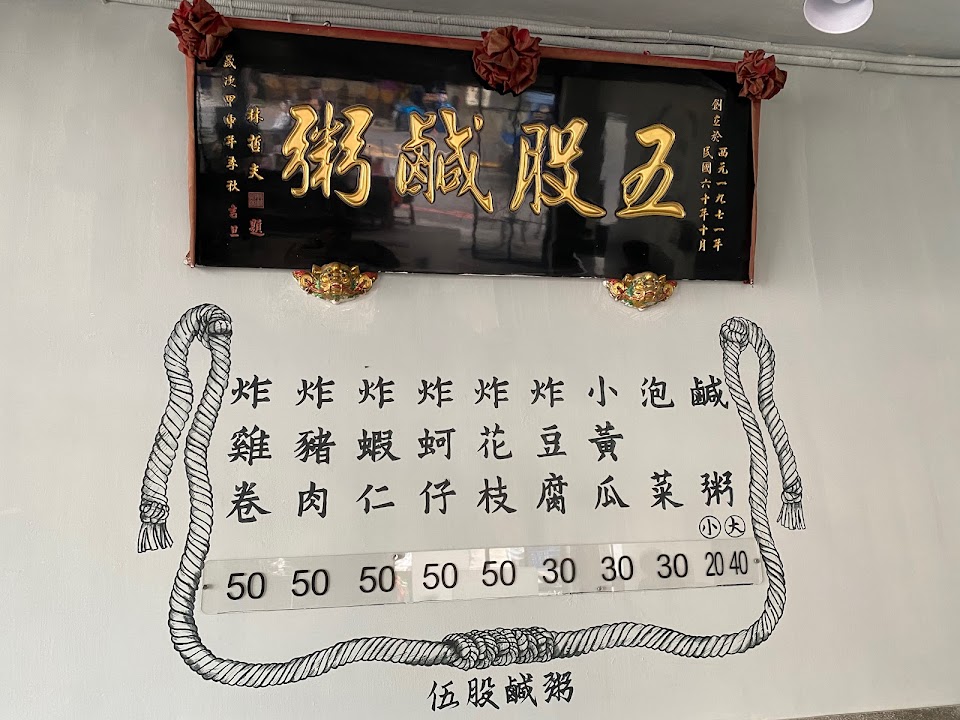 創立於西元一九七一年
民國六十年十月
五股鹹粥
林哲夫
題
歲次甲申年季秋吉旦
鹹粥
泡菜
小黃瓜
炸豆腐
炸花枝
炸蚵仔
炸蝦仁
炸豬肉
炸雞卷
小 大
50 50 50 50 50 30 30 30 20 40
伍股鹹粥